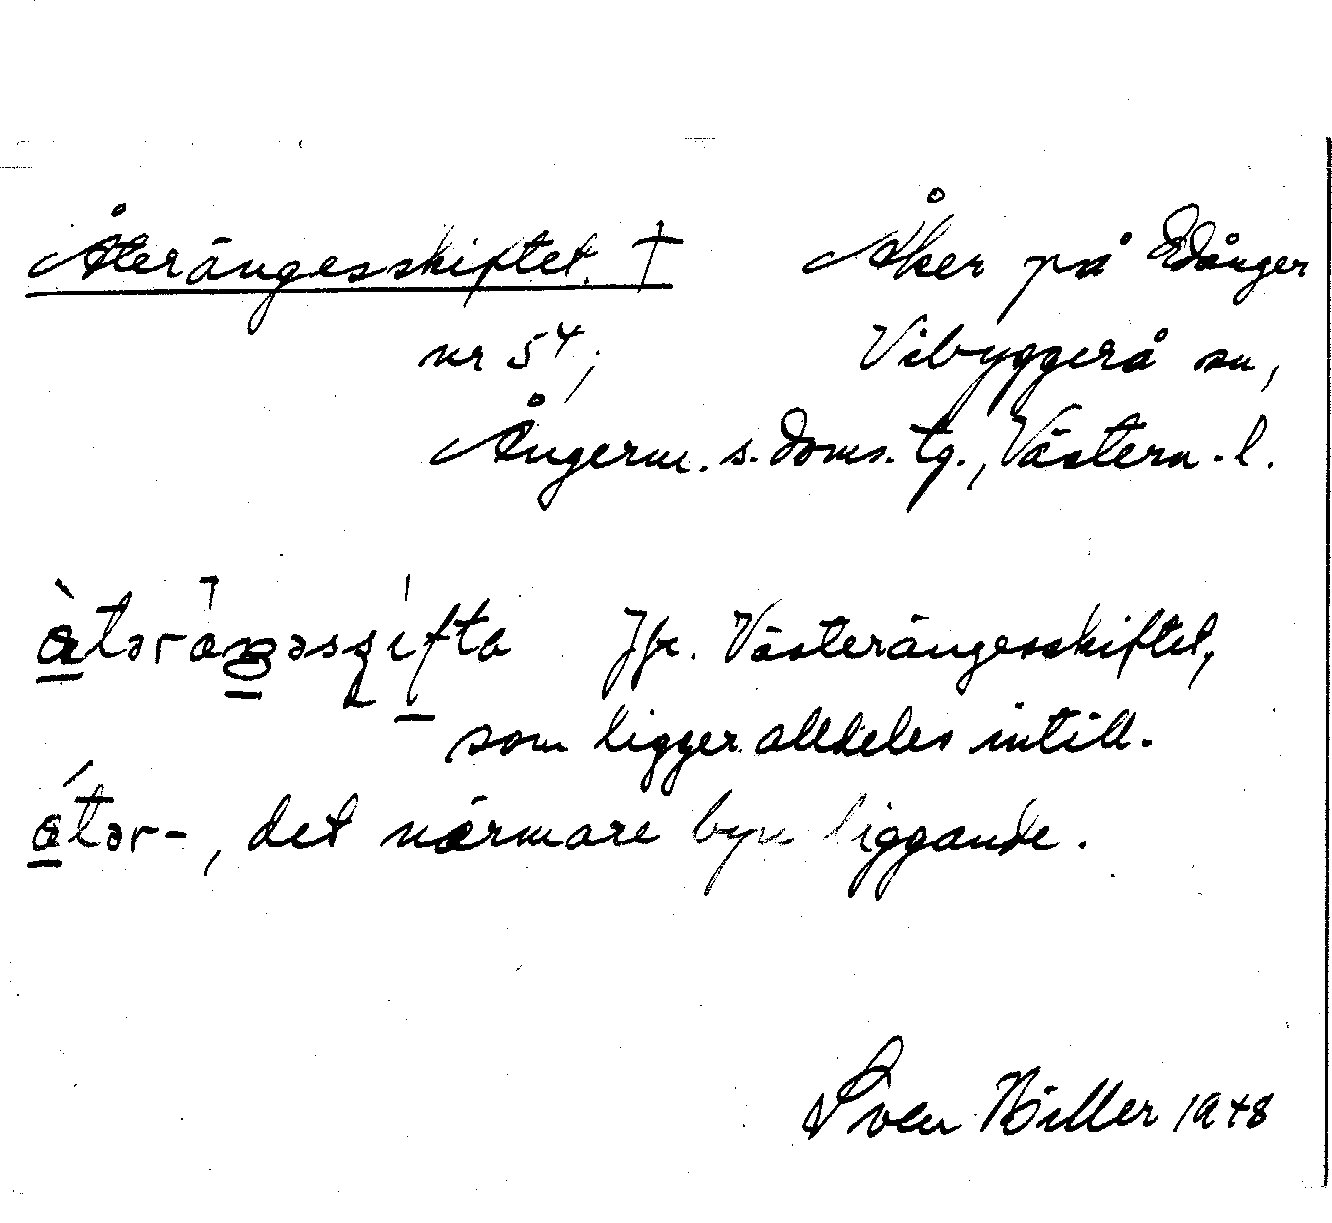 Återängesskiftet. † Åker på Edånger
nr 54, Vibyggerå sn,
Ångerm. s. doms. tg., Västern. l.
àtəräŋəsʂifta Jfr. Västerängesskiftet,
som ligger alldeles intill.
átər-, det närmare byn liggande.
Sven Hiller 1948